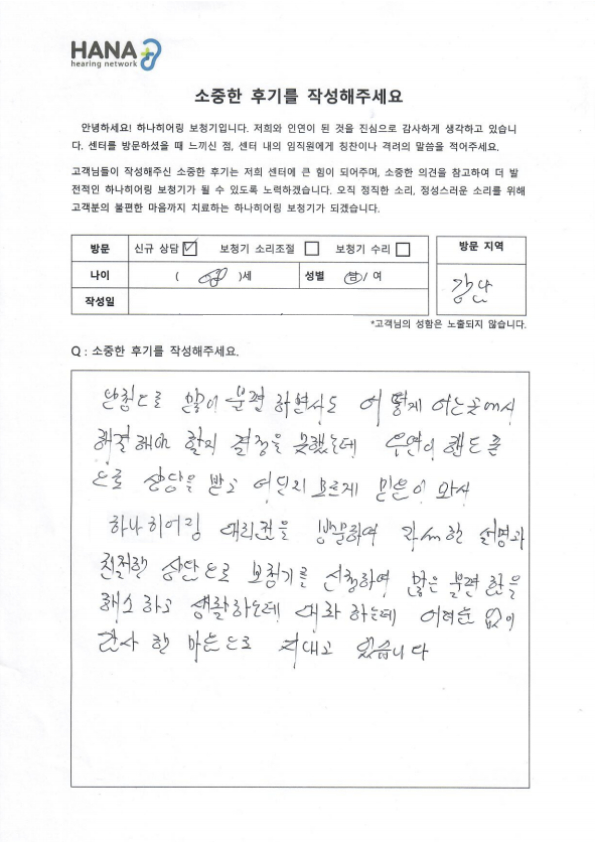 HANA
hearing network
소중한 후기를 작성해주세요
안녕하세요! 하나히어링 보청기입니다. 저희와 인연이 된 것을 진심으로 감사하게 생각하고 있습니
다. 센터를 방문하셨을 때 느끼신 점, 센터 내의 임직원에게 칭찬이나 격려의 말씀을 적어주세요.
고객님들이 작성해주신 소중한 후기는 저희 센터에 큰 힘이 되어주며, 소중한 의견을 참고하여 더 발
전적인 하나히어링 보청기가 될 수 있도록 노력하겠습니다. 오직 정직한 소리, 정성스러운 소리를 위해
고객분의 불편한 마음까지 치료하는 하나히어링 보청기가 되겠습니다.
방문 신규 상담 보청기 소리조절 보청기 수리 방문 지역
나이 ( )세 성별 남 / 여
강남
작성일
*고객님의 성함은 노출되지 않습니다.
Q : 소중한 후기를 작성해주세요.
난청으로 많이 불편 하면서도 어떻게 어느곳에서
해결해야 할지 결정을 못했는데 우연이 핸드폰
으로 상담을 받고 어딘지 모르게 믿음이 와서
하나히어링 대리점을 방문하여 자세한 설명과
친절한 상단으로 보청기를 신청하여 많은 불편 함을
해소 하고 생활하는데 대화 하는데 어려움 없이
감사 한 마음으로 지내고 있습니다